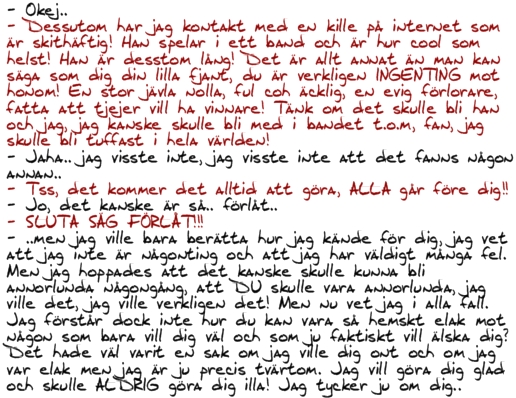 - Okej..
- Dessutom har jag kontakt med en kille på internet som
är skithäftig! Han spelar i ett band och är hur cool som
helst! Han är desstom lång! Det är allt annat än man kan
säga som dig din lilla fjant, du är verkligen INGENTING mot
honom! En stor jävla nolla, ful och äcklig, en evig förlorare,
fatta att tjejer vill ha vinnare! Tänk om det skulle bli han
och jag, jag kanske skulle bli med i bandet t.o.m, fan, jag
skulle bli tuffast i hela världen!
- Jaha.. jag visste inte, jag visste inte att det fanns någon
annan..
- Tss, det kommer det alltid att göra, ALLA går före dig!!
- Jo, det kanske är så.. förlåt..
- SLUTA SÄG FÖRLÅT!!!
- ..men jag ville bara berätta hur jag kände för dig, jag vet
att jag inte är någonting och att jag har väldigt många fel.
Men jag hoppades att det kanske skulle kunna bli
annorlunda någongång, att DU skulle vara annorlunda, jag
ville det, jag ville verkligen det! Men nu vet jag i alla fall.
Jag förstår dock inte hur du kan vara så hemskt elak mot
någon som bara vill dig väl och som ju faktiskt vill älska dig?
Det hade väl varit en sak om jag ville dig ont och om jag
var elak men jag är ju precis tvärtom. Jag vill göra dig glad
och skulle ALDRIG göra dig illa! Jag tycker ju om dig..